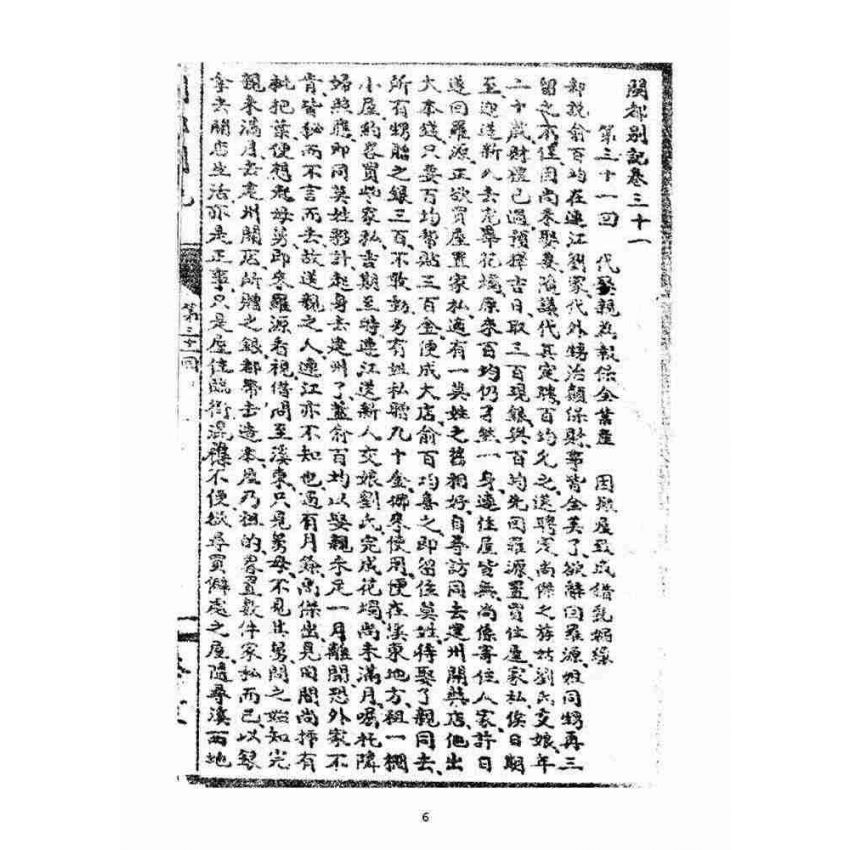 閩都別記卷三十一
第三十一回　代娶親爲報保全業產　因擬屋致成借亂姻緣
却說俞百均在連江劉家代外甥治顏保財帛皆全美了欲辭回羅源姐同甥再三
留之不徃因尚未娶妻陰議代其定聘百均允之送聘定尚傑之族姑劉氏交娘年
二十歲財禮已過預擇吉日取三百現銀與百均先回羅源置買住屋家私俟日期
至迎送新人去花轎花燭原來百均仍孑然一身連住屋皆無尚係寄住人家許日
遂回羅源正欲買屋置家私適有一莫姓之舊相好自尋訪同去建州開典店他出
大本錢只要百均幫貼三百金便成大店俞百均喜之即留住莫姓待娶了親同去
所有甥貽之銀三百不敢動另有姐私贈几十金挪來使用便在溪東地方租一棚
小屋約畧買些家私吉期至時連江送新人交娘劉氏完成花燭尚未滿月囑托隣
婦照應即同莫姓夥計起身去建州了蓋俞百均以娶親未足一月離開恐外家不
肯皆秘而不言而去故送親之人連江亦不知也過有月餘尚傑出見回間尚擇有
枇杷葉便想起母舅即來羅源看視借問至溪東只見舅母不見其舅問之始知完
親未滿月去建州開店所贈之銀都帶去造本屋乃租的畧置數件家私而已以銀
拿去開店生活亦是正事只是屋住臨街混雜不便欲尋買僻處之屋隨尋溪西地
第三十一回
6